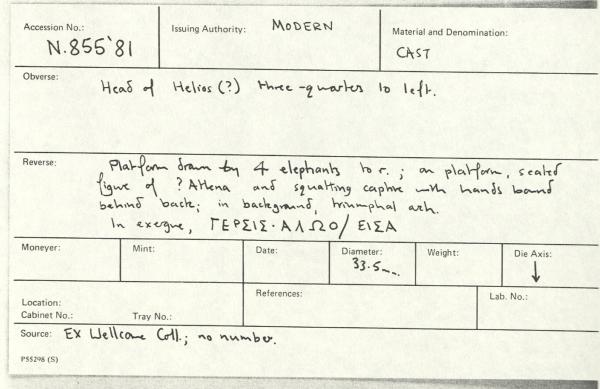 Accession No.: N.855'81
Issuing Authority: MODERN
Material and Denomination: CAST
Obverse: Head of Helios (?) three-quarters to left.
Reverse: Platform drawn by 4 elephants to r.; on platform, seated
figure of ? Athena and squatting captive with hands bound
behind back; in background, triumphal arch.
In exergue, ΓΕΡΣΙΣ·ΑΛΩΟ/ΕΙΣΑ
Moneyer:
Mint:
Date:
Diameter: 33.5mm.
Weight:
Die Axis: ↓
Location:
Cabinet No.: Tray No.:
References:
Lab. No.:
Source: Ex Wellcome Coll.; no number.
P55298 (S)